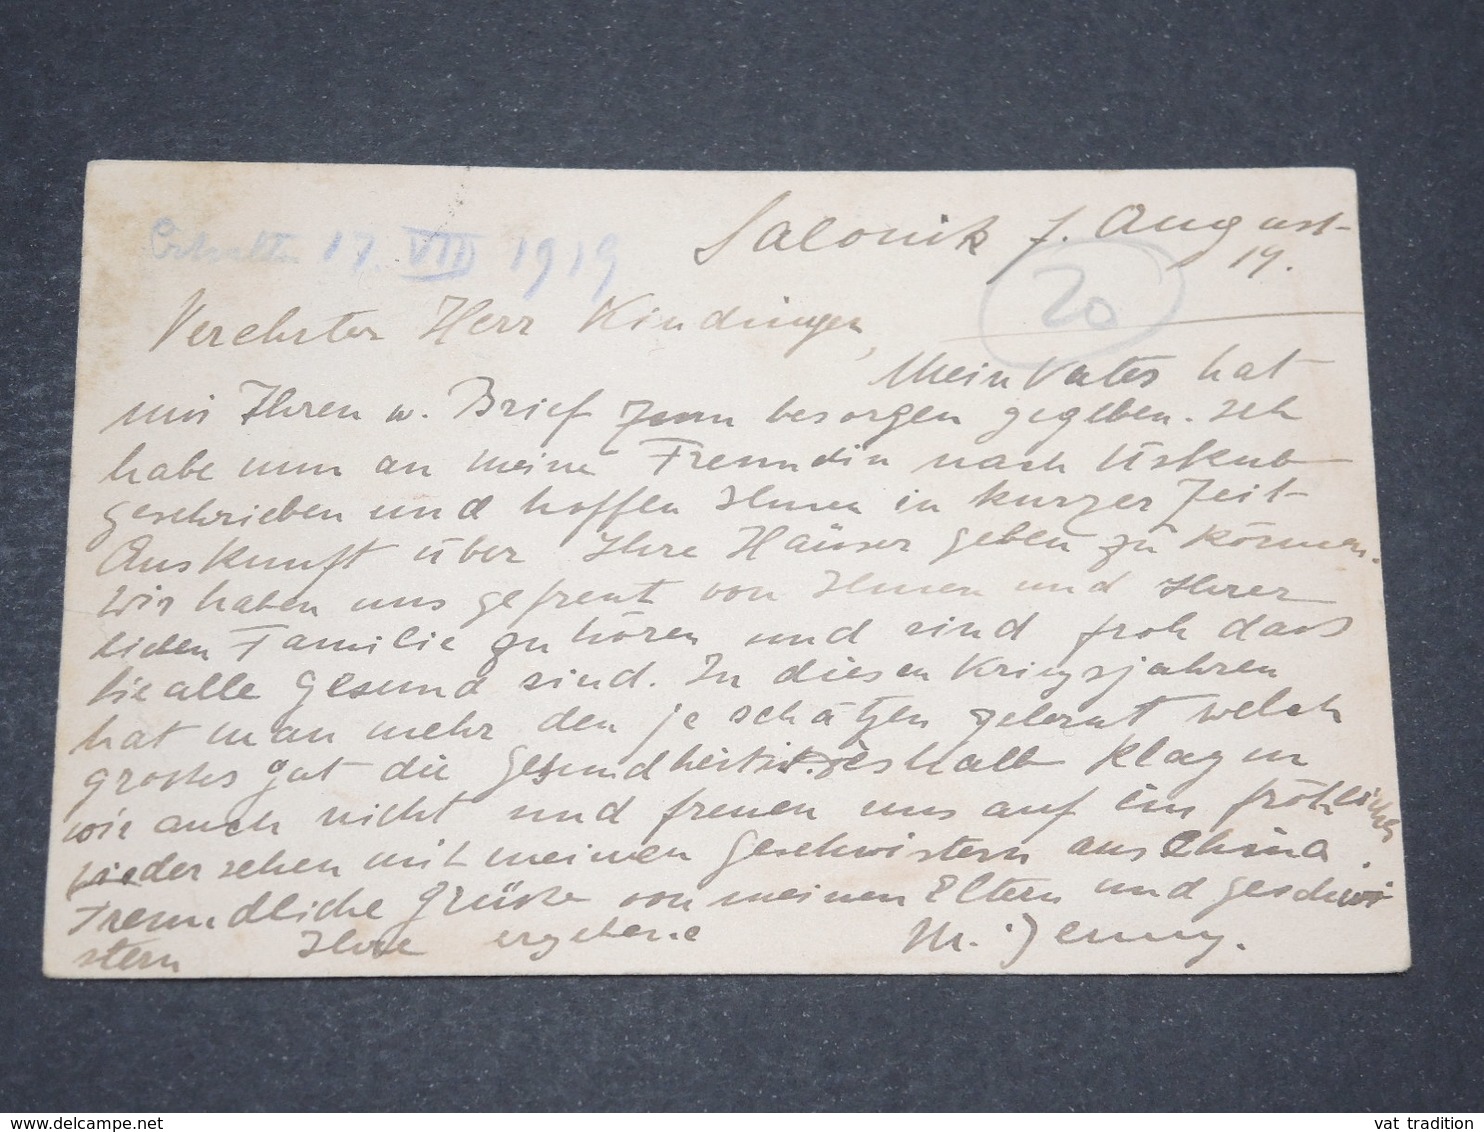 Salonik 7. August
19.
Erhalten 17 VIII 1919
20
Verehrter Herr Kindinger,
Mein Vater hat
mir Ihren w. Brief zum besorgen gegeben. Ich
habe nun an meine Freundin nach Üsküb
geschrieben und hoffen Ihnen in kurzer Zeit
Auskunft über Ihre Häuser geben zu können.
Wir haben uns gefreut von Ihnen und Ihrer
lieben Familie zu hören und sind froh dass
Sie alle gesund sind. In diesen Kriegsjahren
hat man mehr den je schätzen gelernt welch
grosses gut die Gesundheit ist. Deshalb klagen
wir auch nicht und freuen uns auf ein fröhliches
wiedersehen mit meinen Geschwistern aus China.
Freundliche Grüsse von meinen Eltern und Geschwi
stern Ihre ergebene M. Jenny.
www.delcampe.net
vat tradition